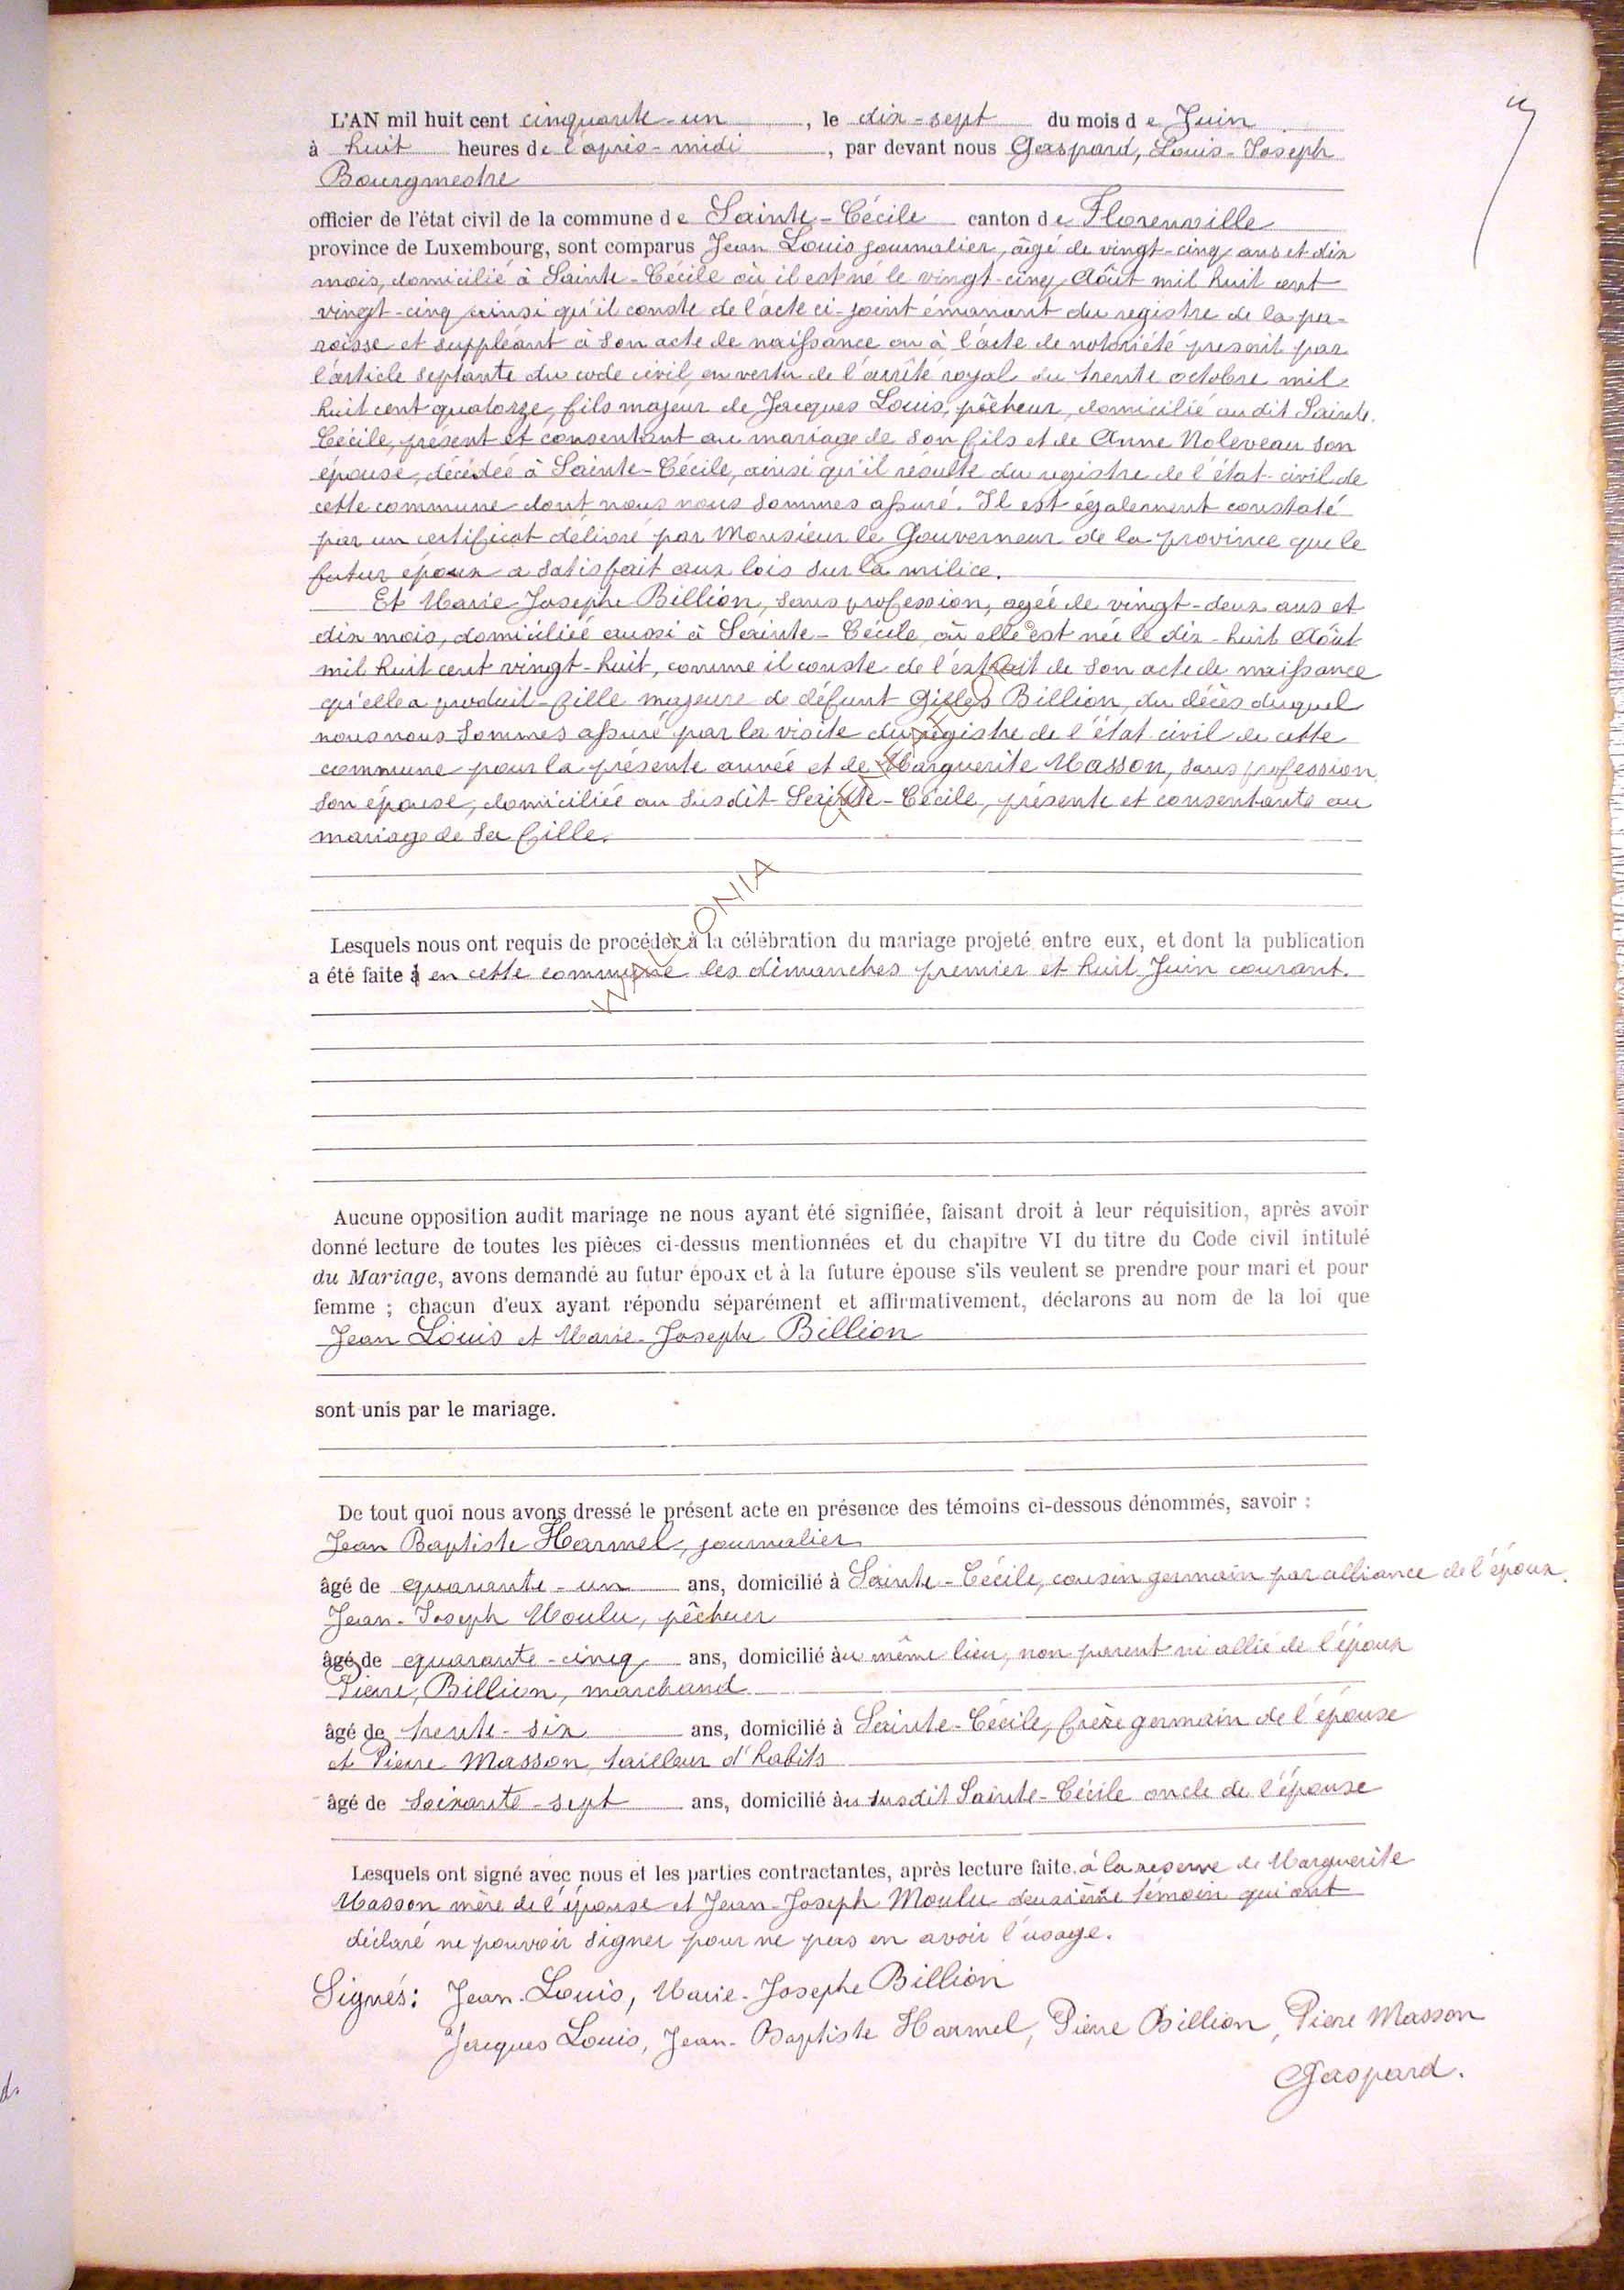 L'AN mil huit cent cinquante-un, le dix-sept du mois de Juin
à huit heures de l'après-midi, par devant nous Gaspard, Louis-Joseph
Bourgmestre
officier de l'état civil de la commune de Sainte-Cécile canton de Florenville
province de Luxembourg, sont comparus Jean Louis journalier, âgé de vingt-cinq ans et dix
mois, domicilié à Sainte-Cécile où il est né le vingt-cinq Août mil huit cent
vingt-cinq ainsi qu'il conste de l'acte ci-joint émanant du registre de la pa-
roisse et suppléant à son acte de naissance ou à l'acte de notoriété prescrit par
l'article septante du code civil, en vertu de l'arrêté royal du trente octobre mil
huit cent quatorze, fils majeur de Jacques Louis, pêcheur, domicilié au dit Sainte
Cécile, présent et consentant au mariage de son fils et de Anne Noleveau son
épouse, décédée à Sainte-Cécile, ainsi qu'il résulte du registre de l'état-civil de
cette commune dont nous nous sommes assuré. Il est également constaté
par un certificat délivré par Monsieur le Gouverneur de la province que le
futur époux a satisfait aux lois sur la milice.
Et Marie-Josephe Billion, sans profession, agée de vingt-deux ans et
dix mois, domiciliée aussi à Sainte-Cécile, où elle est née le dix-huit Août
mil huit cent vingt-huit, comme il conste de l'extrait de son acte de naissance
qu'elle a produit - fille majeure de défunt Gilles Billion, du décès duquel
nous nous sommes assuré par la visite du registre de l'état civil de cette
commune pour la présente année et de Marguerite Masson, sans profession,
son épouse, domiciliée au susdit Sainte-Cécile, présente et consentante au
mariage de sa fille.
© WALLONIA
Lesquels nous ont requis de procéder à la célébration du mariage projeté entre eux, et dont la publication
a été faite à en cette commune les dimanches premier et huit Juin courant.
Aucune opposition audit mariage ne nous ayant été signifiée, faisant droit à leur réquisition, après avoir
donné lecture de toutes les pièces ci-dessus mentionnées et du chapitre VI du titre du Code civil intitulé
du Mariage, avons demandé au futur époux et à la future épouse s'ils veulent se prendre pour mari et pour
femme ; chacun d'eux ayant répondu séparément et affirmativement, déclarons au nom de la loi que
Jean Louis et Marie-Josephe Billion
sont unis par le mariage.
De tout quoi nous avons dressé le présent acte en présence des témoins ci-dessous dénommés, savoir :
Jean Baptiste Harmel, journalier
âgé de quarante-un ans, domicilié à Sainte-Cécile, cousin germain par alliance de l'époux.
Jean-Joseph Moulu, pêcheur
âgé de quarante-cinq ans, domicilié au même lieu, non parent ni allié de l'époux
Pierre Billion, marchand
âgé de trente-six ans, domicilié à Sainte-Cécile, frère germain de l'épouse
et Pierre Masson, tailleur d'habits
âgé de soixante-sept ans, domicilié au susdit Sainte-Cécile oncle de l'épouse
Lesquels ont signé avec nous et les parties contractantes, après lecture faite, à la reserve de Marguerite
Masson mère de l'épouse et Jean-Joseph Moulu deuxième témoin qui ont
déclaré ne pouvoir signer pour ne pas en avoir l'usage.
Signés: Jean-Louis, Marie-Josephe Billion
Jacques Louis, Jean-Baptiste Harmel, Pierre Billion, Pierre Masson
Gaspard.